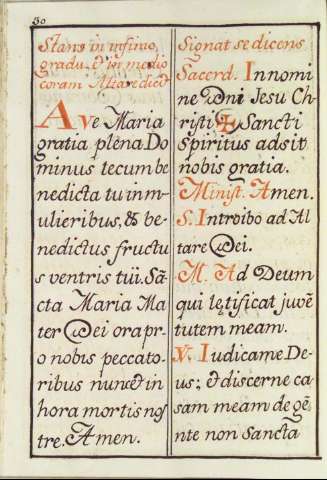 30
Stans in infimo
gradu, & in medio
coram Altare dicit
Ave Maria
gratia plena. Do
minus tecum be
nedicta tu in m-
ulieribus, & be-
nedictus fructu
s ventris tui. Sā
cta Maria Ma
ter Dei ora pr
o nobis peccato-
ribus nunc et in
hora mortis nos
tre. Amen.
Signat se dicens
Sacerd. In nomi
ne Dni Jesu Ch-
risti ✠ Sancti
Spiritus adsit
nobis gratia.
Minist. Amen.
S. Introibo ad Al
tare Dei.
M. Ad Deum
qui lętificat juvē
tutem meam.
V. Iudica me De-
us; & discerne ca
sam meam de gē-
nte non Sancta